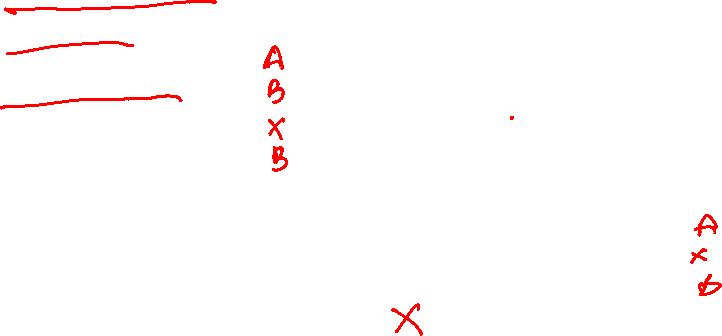 A
B
X
B
A
X
B
X